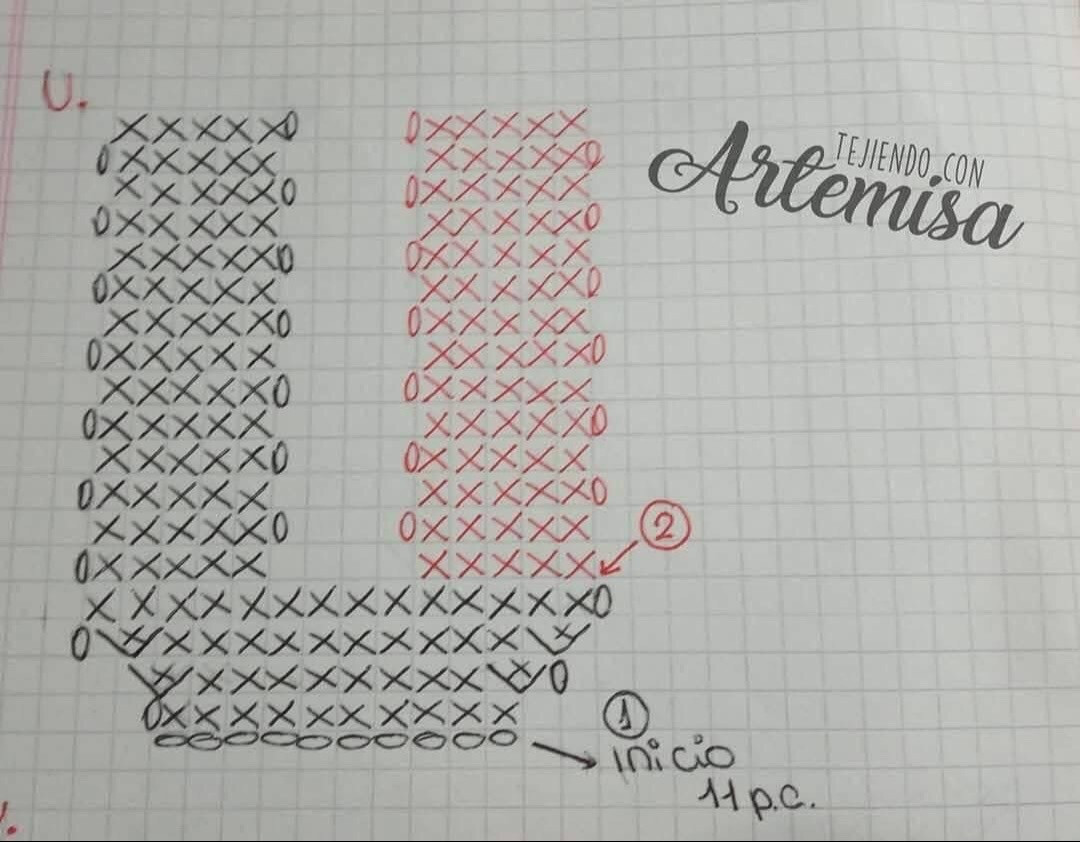 U.
TEJIENDO CON
Artemisa
2
1
inicio
11 p.c.